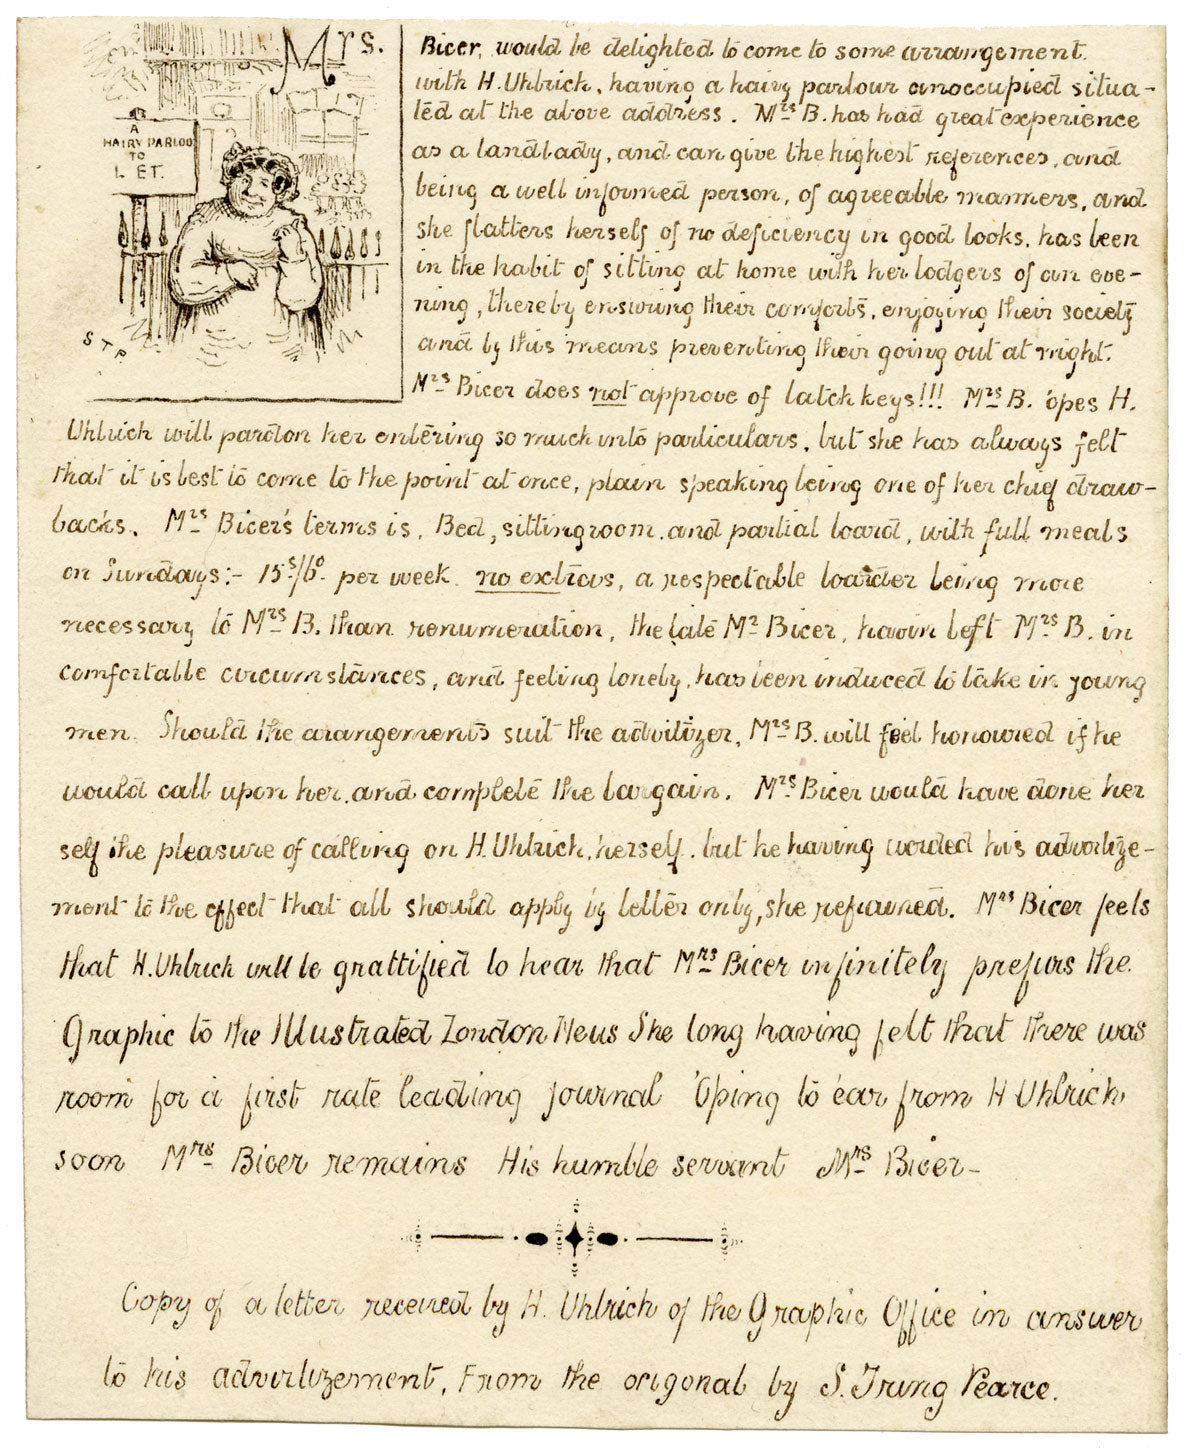 A
HAIRY PARLOU
TO
LET.
S T P
Mrs.
Bicer, would be delighted to come to some arrangement
with H. Uhlrich, having a hairy parlour unoccupied situa-
ted at the above address. Mrs B. has had great experience
as a landlady, and can give the highest references, and
being a well informed person, of agreeable manners, and
she flatters herself of no deficiency in good looks, has been
in the habit of sitting at home with her lodgers of an eve-
ning, thereby ensuring their comforts, enjoying their society
and by this means preventing their going out at night.
Mrs Bicer does not approve of latch keys!!! Mrs B. 'opes H.
Uhlrich will pardon her entering so much into particulars, but she has always felt
that it is best to come to the point at once, plain speaking being one of her chief draw-
backs. Mrs Bicer's terms is, Bed, sittingroom, and partial board, with full meals
on Sundays:- 15s/6d per week no extras, a respectable boarder being more
necessary to Mrs B. than renumeration, the late Mr Bicer, havin left Mrs B. in
comfortable circumstances, and feeling lonely, has been induced to take in young
men. Should the arangements suit the advitizer, Mrs B. will feel honoured if he
would call upon her, and complete the bargain. Mrs Bicer would have done her
self the pleasure of calling on H. Uhlrich, herself, but he having worded his advertize-
ment to the effect that all should apply by letter only, she refrained. Mrs Bicer feels
that H. Uhlrich will be grattified to hear that Mrs Bicer infinitely prefurs the
Graphic to the Illustrated London News She long having felt that there was
room for a first rate leading journal 'Oping to 'ear from H Uhlrich
soon Mrs Bicer remains His humble servant Mrs Bicer-
Copy of a letter received by H. Uhlrich of the Graphic Office in answer
to his advirtizement, From the origonal by S. Trung Pearce.